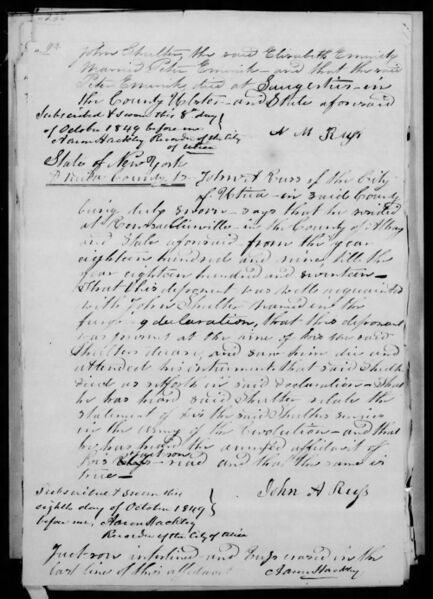 John Shulter, the said Elizabeth Emrick
married Peter Emrick and that the said
Peter Emrick died at Saugerties in
the County Ulster and State aforesaid
Subscribed & sworn this 8th day
of October 1849 before me
Aaron Hackley Recorder of the City
of Utica
A M Russ
State of New York
Oneida County ss John A Russ of the City
of Utica in said County
being duly sworn says that he resided
at Rensselaerville in the County of Albany
and State aforesaid from the year
eighteen hundred and nine, till the
year eighteen hundred and seventeen
That this deponent was well acquainted
with John Shulter named in the
foregoing declaration, that this deponent
was present at the of him the said
Shulters decease, and saw him die and
attended his interment that said Shulter
died as setforth in said declaration that
he has heard said Shulter relate the
statement of his the said Shulters service
in the army of the Revolution and that
he has heard the annexed affidavit of
read and that the same is
true
Subscribed & sworn this
eighth day of October 1849
before me, Aaron Hackley
Recorder of the City of Utica
John A Russ
interlined and erased in the
last line of this affidavit
Aaron Hackley